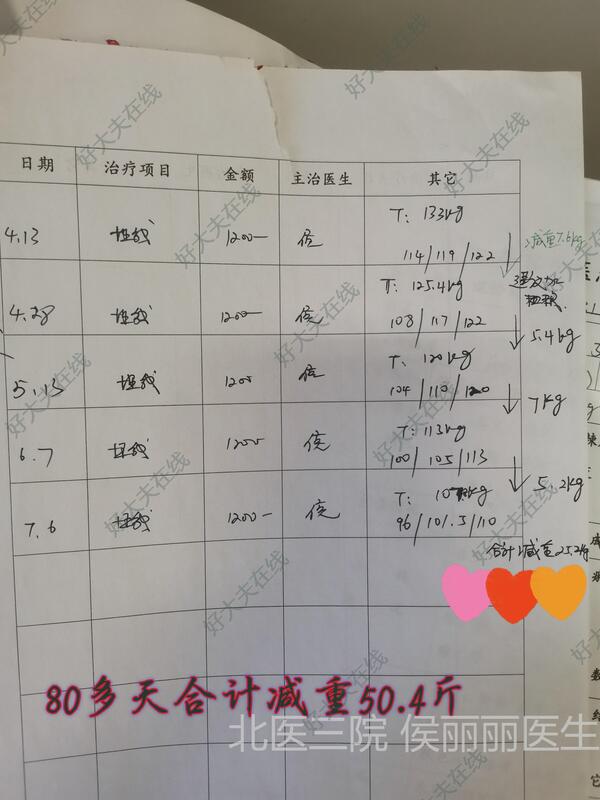 日期 治疗项目 金额 主治医生 其它
T: 133kg
4.13 埋线 1200- 侯 减重7.6kg
114/119/122
T: 125.4kg
4.28 埋线 1200- 侯
108/117/122 5.4kg
T: 120kg
5.13 埋线 1200 侯
104/110/120 7kg
T: 113kg
6.7 埋线 1200 侯
100/105/113 5.2kg
T:
7.6 埋线 1200- 侯
96/101.5/110
合计减重25.2kg
80多天合计减重50.4斤
北医三院 侯丽丽医生
好大夫在线